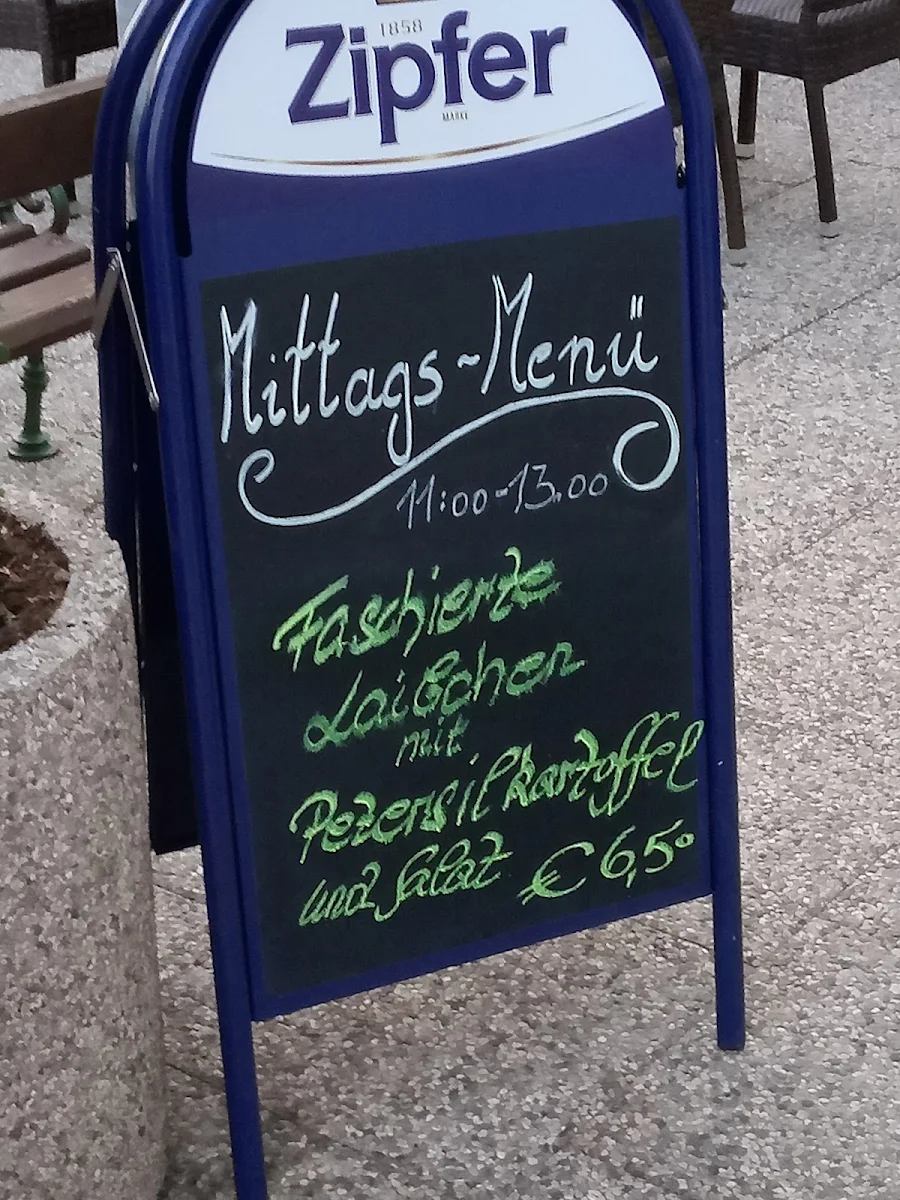 1858
Zipfer
MARKE
Mittags~Menü
11:00-13.00
Faschierte
Laibchen
mit
Petersilkartoffel
und Salat € 6,50